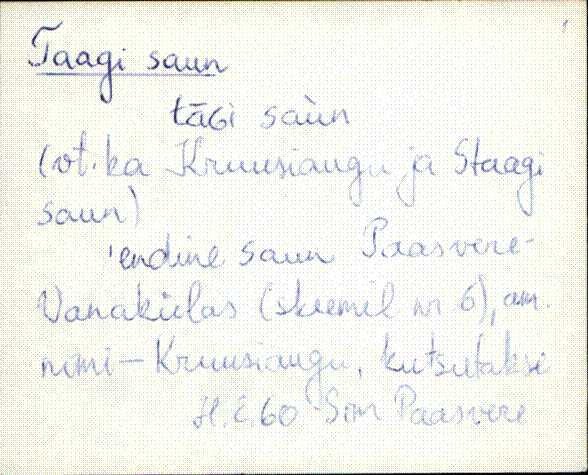 Taagi saun
tāGi saùn
(vt. ka Kruusiaugu ja Staagi
saun)
'endine saun Paasvere-
Vanakülas (skeemil nr 6), am.
nimi – Kruusiaugu, kutsutakse
H. E. 60 Sim Paasvere